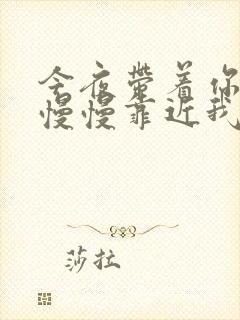 今夜带着你
慢慢靠近我
莎拉